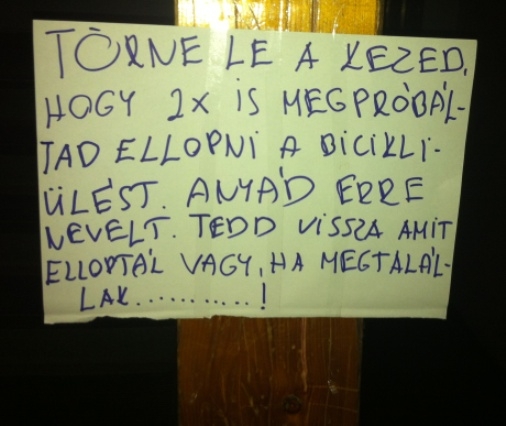 TÖRNE LE A KEZED,
HOGY 2X IS MEGPRÓBÁL-
TAD ELLOPNI A BICIKLI-
ÜLÉST. ANYÁD ERRE
NEVELT. TEDD VISSZA AMIT
ELLOPTÁL VAGY, HA MEGTALÁL-
LAK..........!